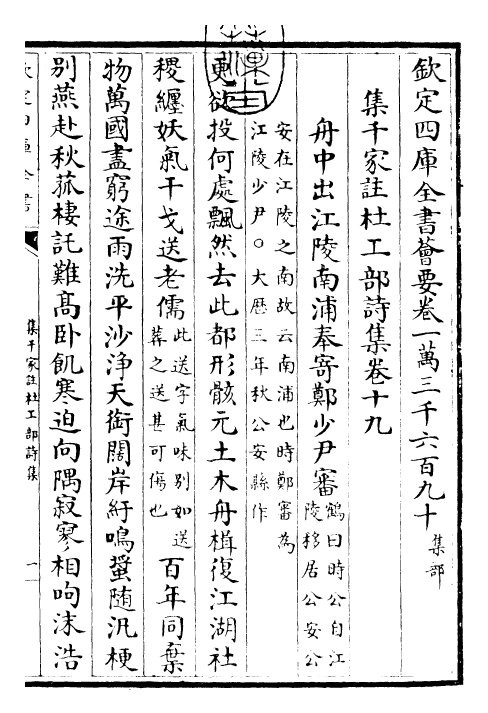 欽定四庫全書薈要卷一萬三千六百九十 集部
集千家註杜工部詩集卷十九
舟中出江陵南浦奉寄鄭少尹審 鶴曰時公自江
陵移居公安公
安在江陵之南故云南浦也時鄭審為
江陵少尹○大歴三年秋公安縣作
更欲投何處飄然去此都形骸元土木舟楫復江湖社
稷纏妖氣干戈送老儒 此送字氣味别如送
葬之送甚可傷也 百年同棄
物萬國盡窮途雨洗平沙淨天銜闊岸紆鳴螿随汎梗
别燕赴秋菰棲託難髙卧飢寒迫向隅寂寥相呴沫浩
欽定四庫全書
集千家註杜工部詩集
一